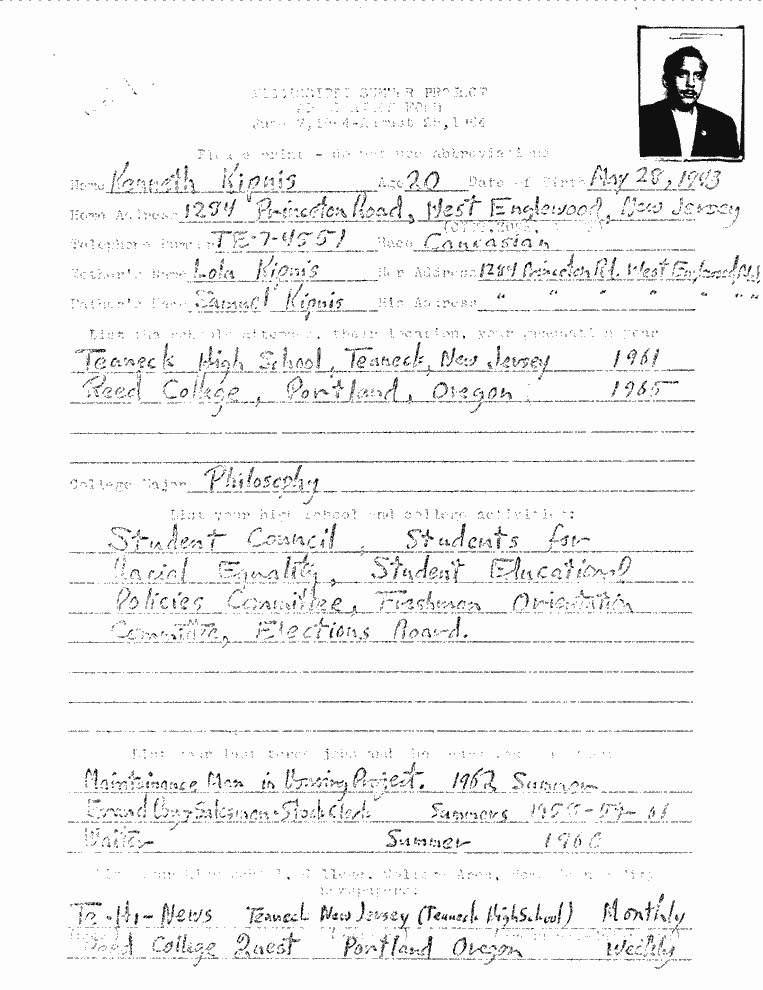 MISSISSIPPI SUMMER PROJECT
APPLICATION FORM
June 7, 1964-August 25, 1964
Please print - do not use abbreviations
Name Kenneth Kipnis Age 20 Date of Birth May 28, 1943
Home Address 1284 Princeton Road, West Englewood, New Jersey
Telephone Number TE-7-4551 Race Caucasian
Mother's Name Lola Kipnis Her Address 1284 Princeton Rd. West Englewood, N.J.
Father's Name Samuel Kipnis His Address " " " " " " "
List the schools attended, their location, your graduation year
Teaneck High School, Teaneck, New Jersey 1961
Reed College, Portland, Oregon 1965
College Major Philosophy
List your high school and college activities:
Student Council, Students for
Racial Equality, Student Educational
Policies Committee, Freshman Orientation
Committee, Elections Board.
List your last three jobs and the
Maintainance Man in Housing Project. 1962 Summer
Errand Boy-Salesman-Stock Clerk Summers 1958-59-61
Waiter Summer 1960
newspapers:
Te-Hi-News Teaneck New Jersey (Teaneck High School) Monthly
Reed College Quest Portland Oregon Weekly